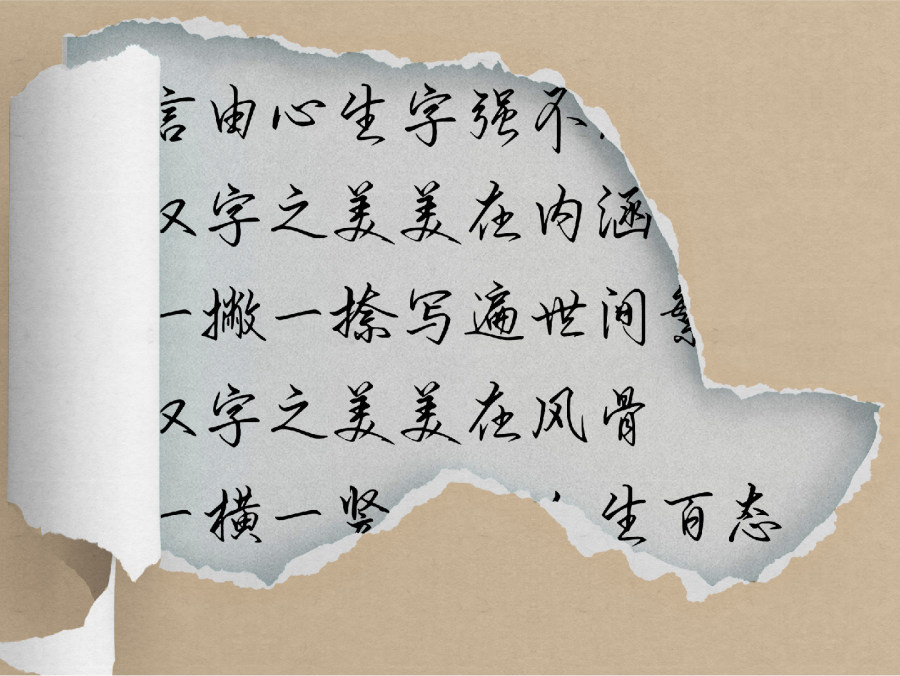 言由心生字强不
汉字之美美在内涵
一撇一捺写遍世间繁
汉字之美美在风骨
一横一竖 生百态